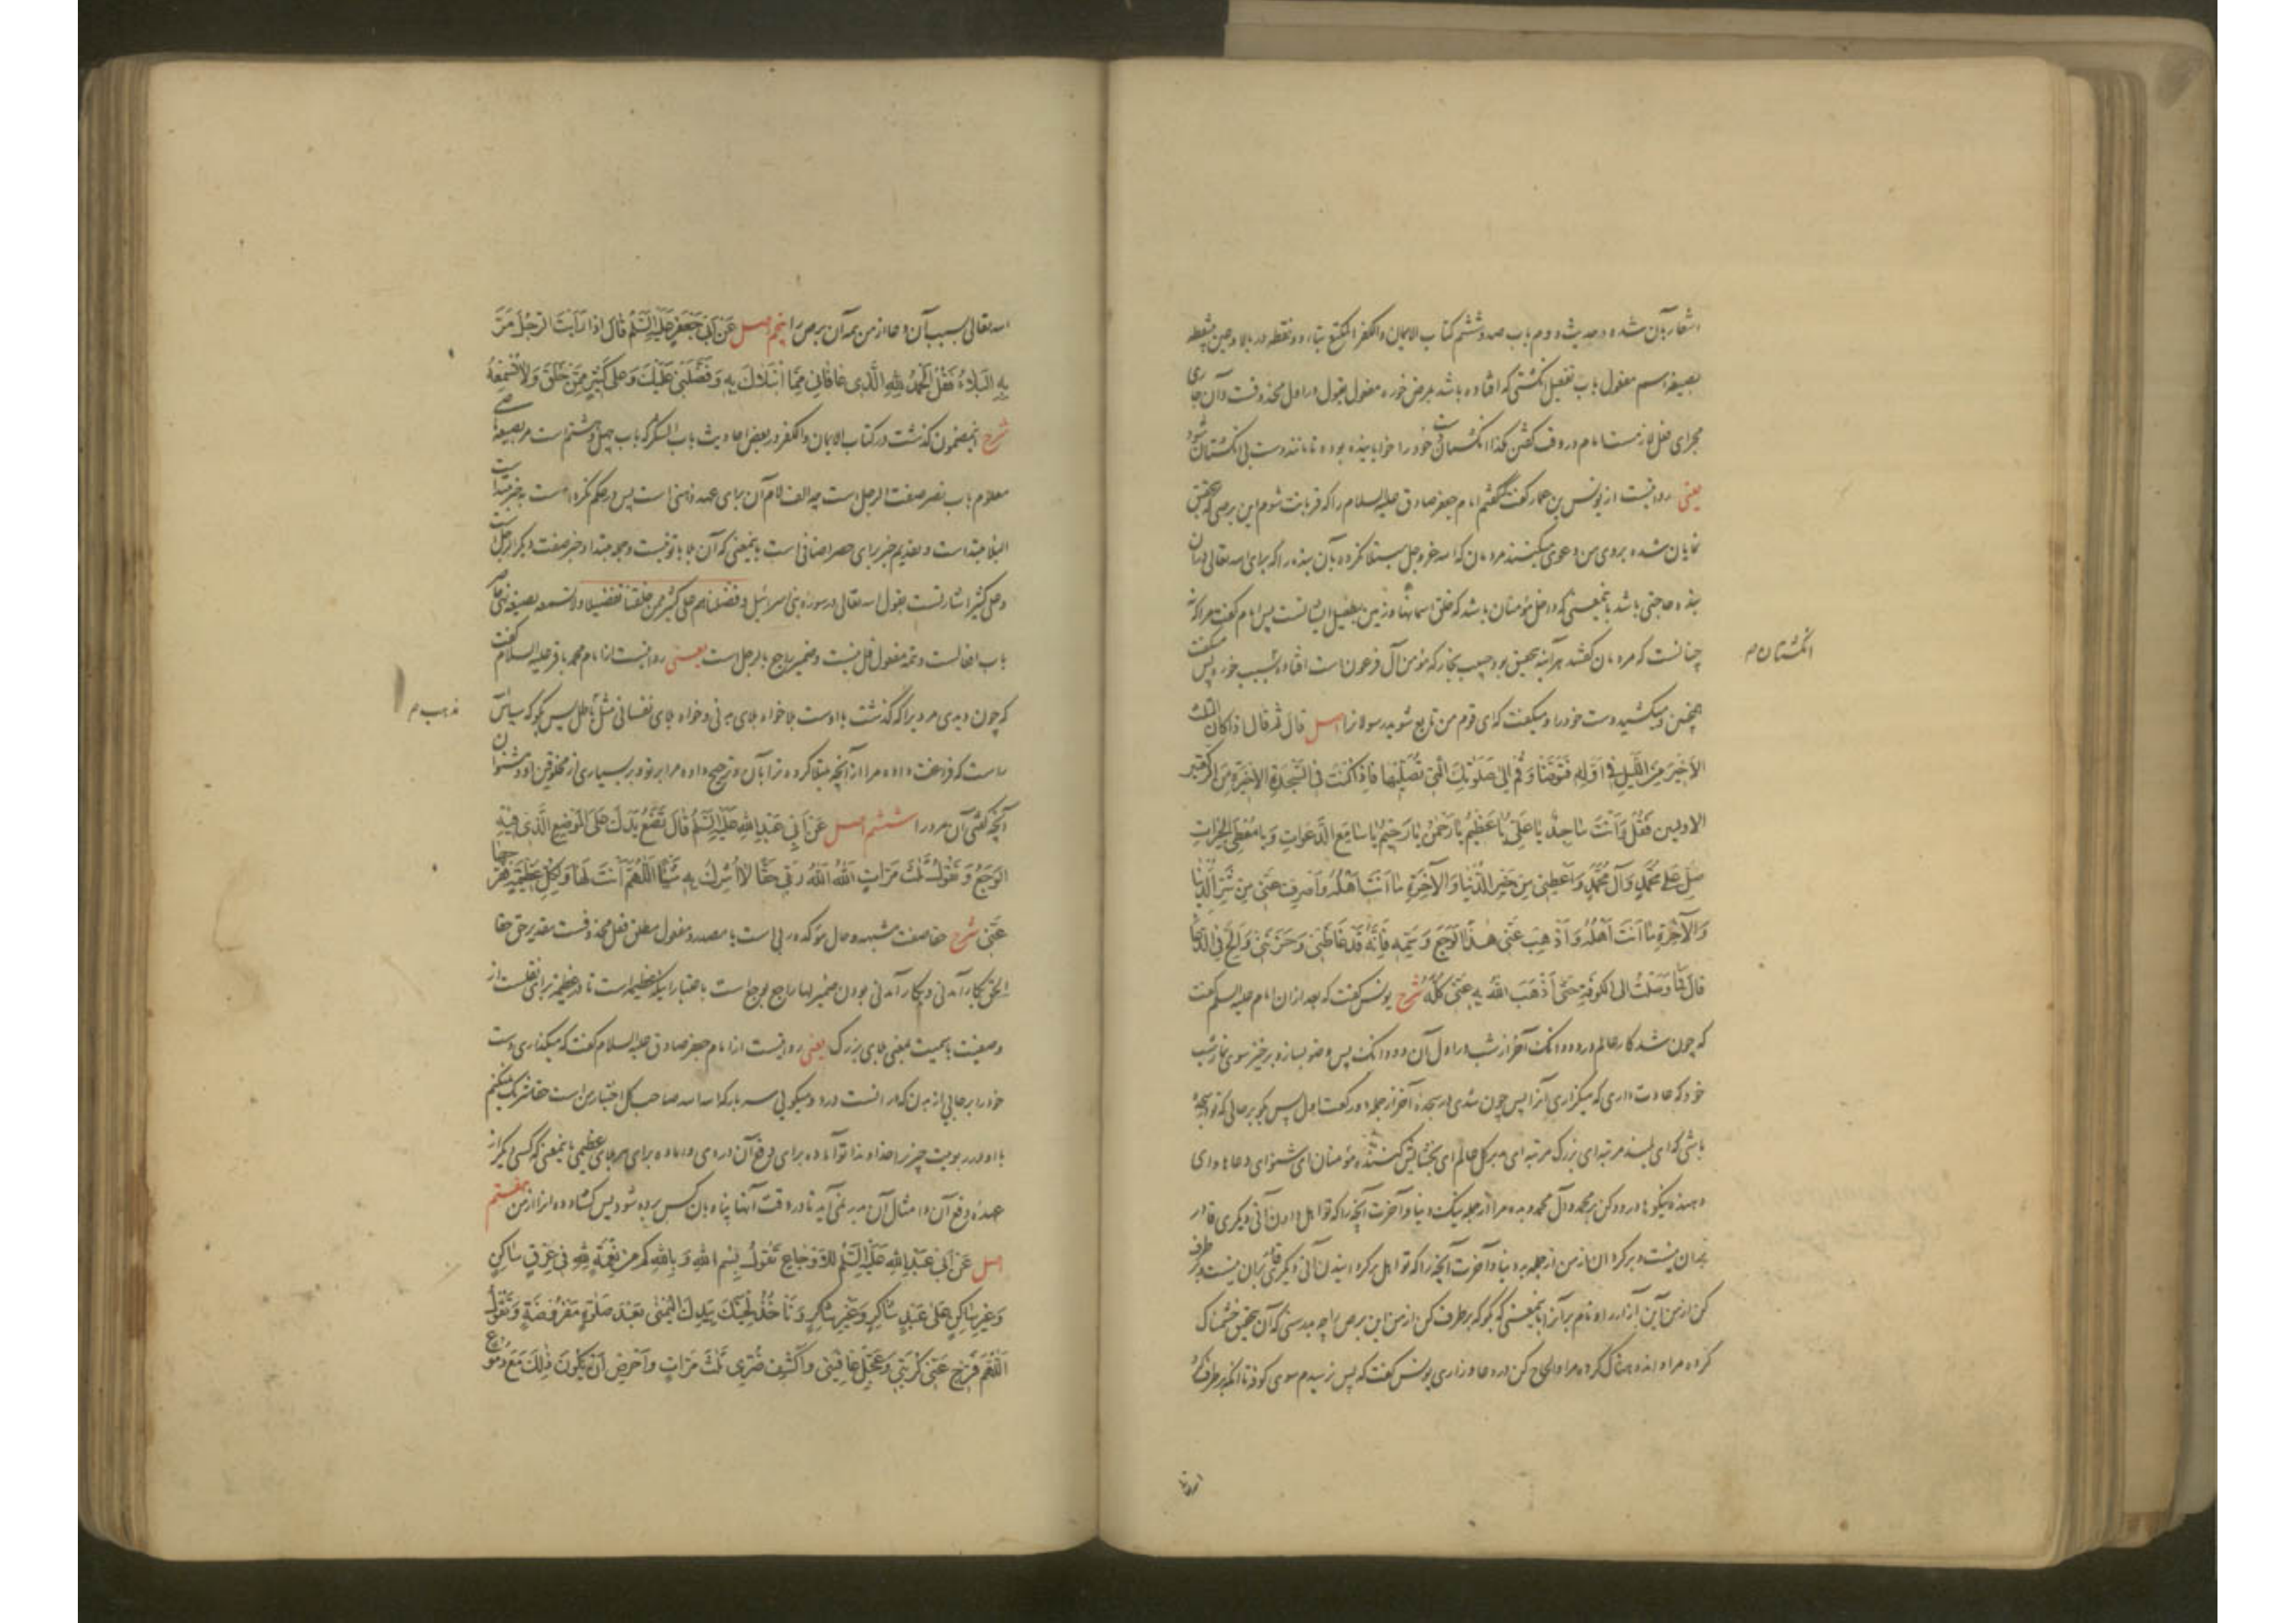 اشعار بآن شده در حدیث دوم باب صد و ششم کتاب الایمان والکفر المکنع بتاء دو نقطه در بالا و عین بینقطه
بصیغه اسم مفعول باب تفعیل انگشتی که افتاده باشد بمرض خوره مفعول یقول در اول محذوفست و آن جاری
مجرای فعل لازمست امام در وقت گفتن هکذا انگشتان دست خود را خوابانیده بوده تا مانند دست بی انگشتان شود
یعنی روایتست از یونس بن عمار گفت گفتم امام جعفر صادق علیه السلام را که قربانت شوم این برصی که بتحقیق
نمایان شده بروی من دعوی میکنند مردمان که الله عز وجل مبتلا نکرده بآن بنده را که برای الله تعالی در آن
بنده حاجتی باشد باینمعنی که داخل مؤمنان باشد که خلق آسمانها و زمین بطفیل ایشانست پس امام گفت مرا که نه
چنانست که مردمان گفتند هر آینه بتحقیق بود حبیب نجار که مؤمن آل فرعون است افتاده بسبب خوره پس میگفت
همچنین و میکشید دست خود را و میگفت که ای قوم من تابع شوید رسولانرا اصل قال ثم قال اذا کان الثلث
الاخیر من اللیل فی اوله فتوضأ و قم الی صلوتک التی تصلیها فاذا کنت فی السجدة الاخیرة من الرکعتین
الاولیین فقل و انت ساجد یا علی یا عظیم یا رحمن یا رحیم یا سامع الدعوات و یا معطی الخیرات
صل علی محمد و آل محمد و اعطنی من خیر الدنیا والآخرة ما انت اهله و اصرف عنی من شر الدنیا
والآخرة ما انت اهله و اذهب عنی هذا الوجع و تسمیه فانه قد غاظنی و حزننی و الح فی الدعا
قال فما وصلت الی الکوفة حتی اذهب الله به عنی کله شرح یونس گفت که بعد از آن امام علیه السلم گفت
که چون شد کار عالم در دو دانگ آخر از شب در اول آن دو دانگ پس وضو بساز و برخیز سوی نماز شب
خود که عادت داری که میگزاری آنرا پس چون شدی در سجده آخر از جمله دو رکعت اول پس بگو بر حالی که تو در سجده
باشی که ای بلند مرتبه ای بزرگ مرتبه ای مدبر کل عالم ای بخشایش کننده مؤمنان ای شنوای دعاها و ای
دهنده نیکوها درود کن بر محمد و آل محمد و بده مرا از جمله نیک دنیا و آخرت آنچه را که تو اهل دادن آنی و دیگری قادر
بدان نیست و برگردان از من از جمله بد دنیا و آخرت آنچه را که تو اهل برگردانیدن آنی و دیگری قادر بران نیست و برطرف
کن از من این آزار را و نام بر آنرا باینمعنی که بگو که برطرف کن از من این برص را چه بدرستی که آن بتحقیق خشمناک
کرده مرا و اندوهناک کرده مرا و الحاح کن در دعا و زاری یونس گفت که پس نرسیدم سوی کوفه تا آنکه برطرف کرد
انگشتان م
الله تعالی بسبب آن دعا از من همه آن برص را پنجم اصل عن ابی جعفر علیه السلم قال اذا رأیت الرجل مر
به البلاء فقل الحمد لله الذی عافانی مما ابتلاک به و فضلنی علیک و علی کثیر ممن خلق ولا تسمعه
شرح اینمضمون گذشت در کتاب الایمان والکفر در بعض احادیث باب الشکر که باب چهل و هشتم است مر بصیغه ماضی
معلوم باب نصر صفت الرجل است چه الف لام آن برای عهد ذهنی است پس در حکم نکره است به خبر مبتداست
البلاء مبتداست و تقدیم خبر برای حصر اضافی است باینمعنی که آن بلا با تو نیست و جمله مبتدا و خبر صفت دیگر الرجل است
و علی کثیر اشارتست بقول الله تعالی در سوره بنی اسرائیل و فضلناهم علی کثیر ممن خلقنا تفضیلا ولا تسمعه بصیغه نهی حاضر
باب افعالست و تتمه مفعول قل نیست و ضمیر راجع بالرجل است یعنی روایتست از امام محمد باقر علیه السلام گفت
که چون دیدی مردیرا که گذشت با اوست بلا خواه بلای بدنی و خواه بلای نفسانی مثل باطل پس بگو که سپاس
راست که فراغت داده مرا از آنچه مبتلا کرده ترا بآن و ترجیح داده مرا بر تو و بر بسیاری از مخلوقین او و مشنوان
آنچه گفتی آن مرد را ششم اصل عن ابی عبد الله علیه السلم قال تضع یدک علی الموضع الذی فیه
الوجع و تقول ثلث مرات الله الله ربی حقا لا اشرک به شیئا اللهم انت لها و لکل عظیمة ففرجها
عنی شرح حقا صفت مشبهه و حال مؤکده ربی است یا مصدر و مفعول مطلق فعل محذوفست بتقدیر حق حقا
وصفیت باسمیت بمعنی بلای بزرگ یعنی روایتست از امام جعفر صادق علیه السلام گفت که میگذاری دست
خود را بر جایی از بدن که در آنست درد و میگویی سه بار که الله الله صاحب کل اختیار من است حقا شریک نمیکنم
با او در ربوبیت چیزیرا خداوندا تو آماده برای دفع آن دردی و آماده برای هر بلای عظیمی باینمعنی که کسی دیگر از
عهده دفع آن و امثال آن بدر نمی آید تا در وقت آنها پناه بآن کس برده شود پس گشاد ده انرا از من هفتم
اصل عن ابی عبد الله علیه السلم للاوجاع تقول بسم الله و بالله کم من نعمة لله فی عرق ساکن
و غیر ساکن علی عبد شاکر و غیر شاکر و تاخذ لحیتک بیدک الیمنی بعد صلوة مفروضة و تقول
اللهم فرج عنی کربتی و عجل عافیتی و اکشف ضری ثلث مرات و احرص ان یکون ذلک مع دموع